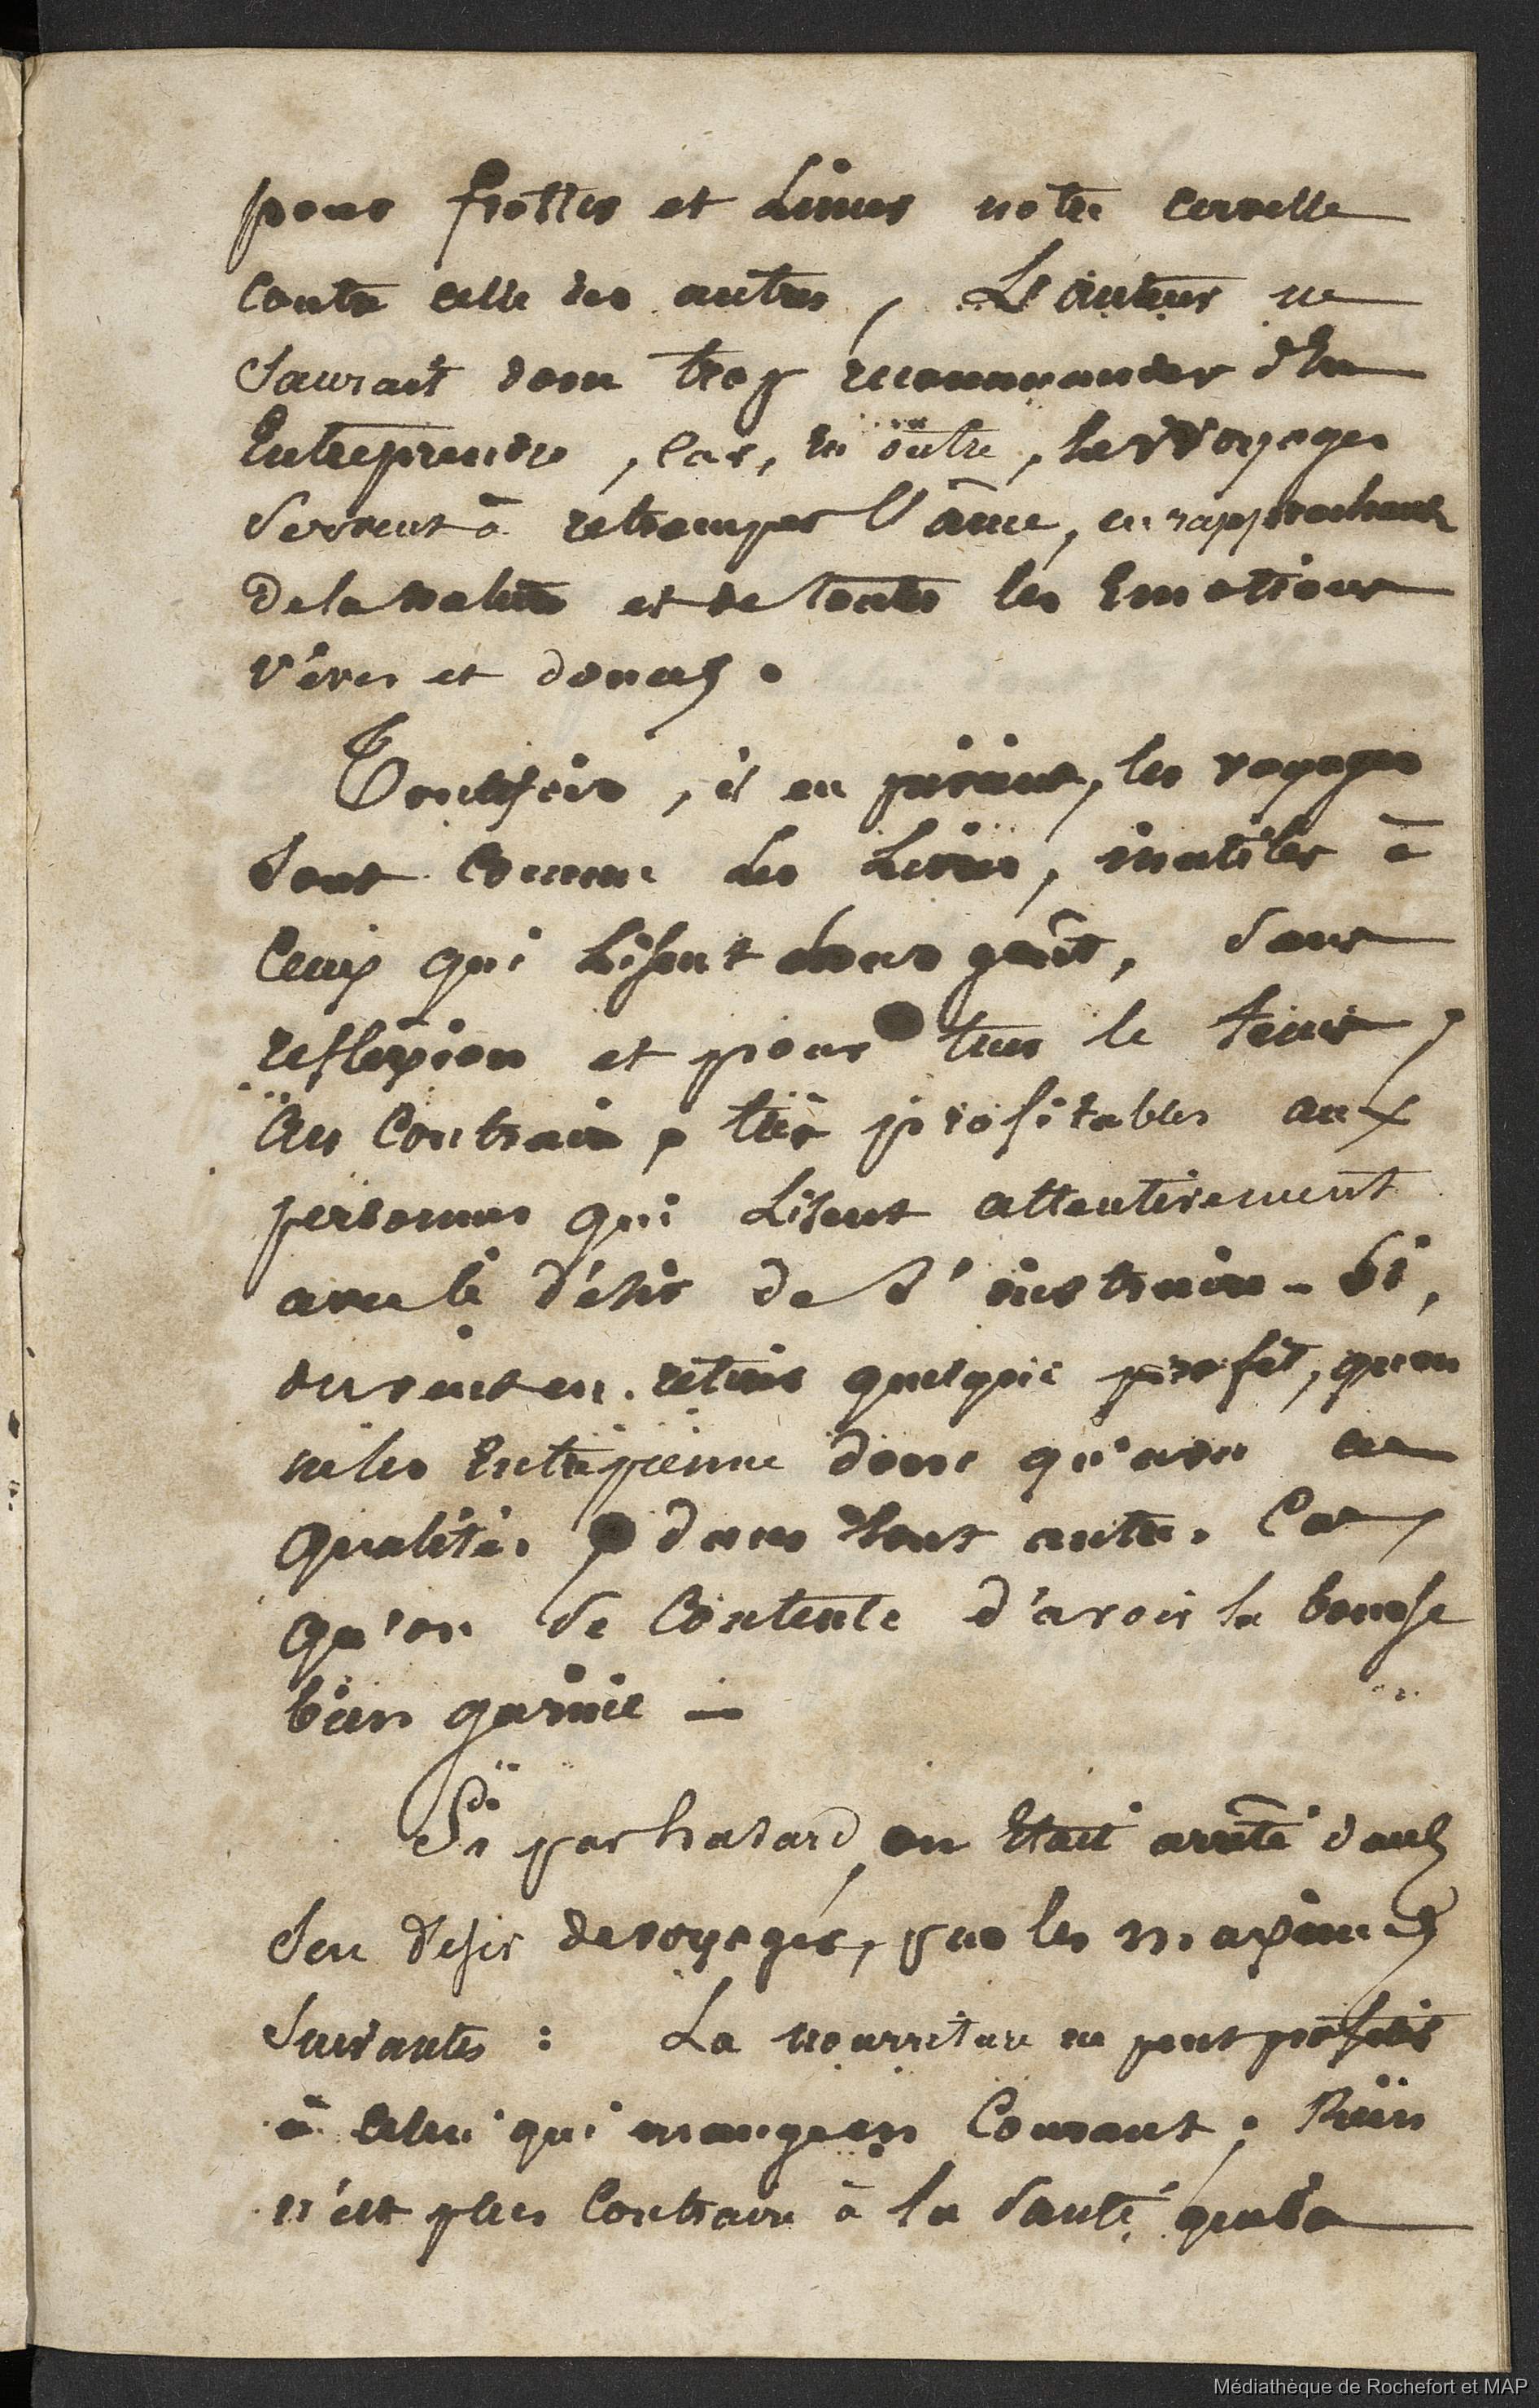 pour frotter et Limer notre cervelle
contre celle des autres, L'auteur ne
Saurait donc trop recommander d'En
Entreprendre, Car, En outre, les Voyages
Servent à retremper l'âme, en rapprochant
de la nature et de toutes les Emotions
vives et douces.
Toutefois, il en prévient, les voyages
Sont Comme les Livres, inutiles à
Ceux qui Lisent sans goût, Sans
reflexion et pour tuer le tems,
Au Contraire, très profitables aux
personnes qui Lisent attentivement
avec le désir de S'instruire - Si,
on veut en retirer quelque profit, qu'on
ne les Entreprenne donc qu'avec ces
qualités dans tout autre. Cas,
qu'on Se Contente d'avoir la bourse
bien garnie —
Si par hasard, on Etait arrêté dans
Son desir de voyager, par les maximes
Suivantes : La nourriture ne peut profiter
à Celui qui mange en Courant ; Rien
n'est plus Contraire à la Santé que la
Médiathèque de Rochefort et MAP